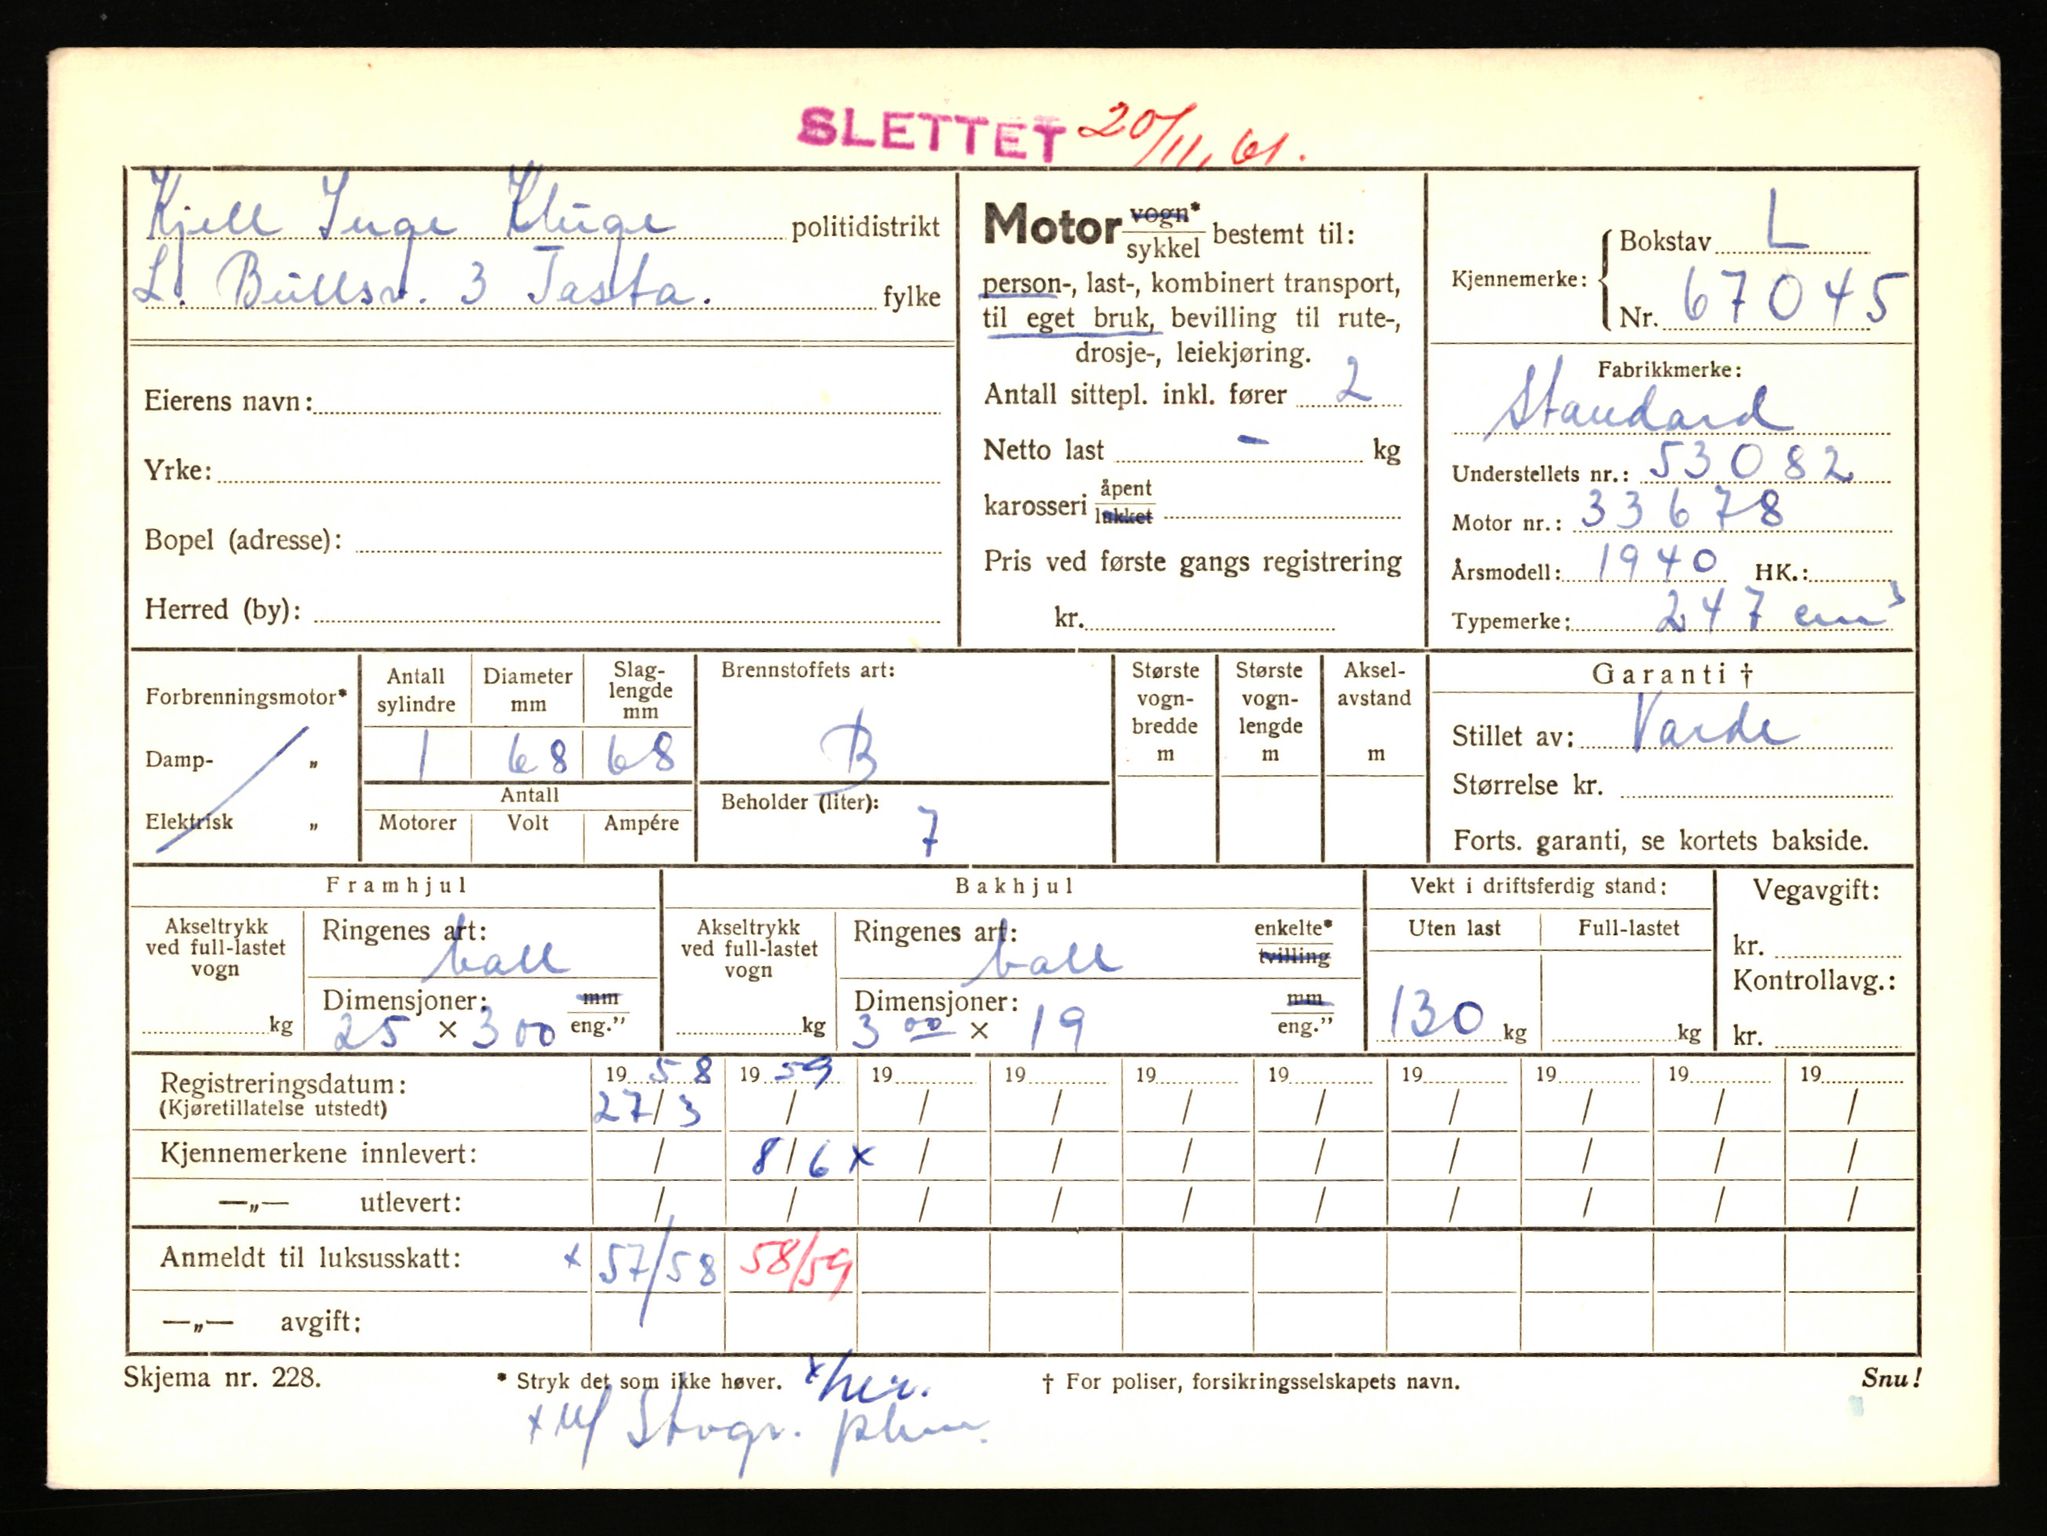 SLETTET 20/11, 61.
Kjell Inge Kluge politidistrikt
L. Bullsv. 3 Tasta. fylke
Eierens navn:
Yrke:
Bopel (adresse):
Herred (by):
Motor vogn* / sykkel bestemt til:
person-, last-, kombinert transport,
til eget bruk, bevilling til rute-,
drosje-, leiekjøring.
Antall sittepl. inkl. fører 2
Netto last - kg
karosseri åpent / lukket
Pris ved første gangs registrering
kr.
Kjennemerke: Bokstav L
Nr. 67045
Fabrikkmerke:
Standard
Understellets nr.: 53082
Motor nr.: 33678
Årsmodell: 1940 HK.:
Typemerke: 247 cm³
Forbrenningsmotor*
Damp- „
Elektrisk „
Antall sylindre Diameter mm Slag-lengde mm
1 68 68
Antall
Motorer Volt Ampére
Brennstoffets art:
B
Beholder (liter):
7
Største vogn-bredde m
Største vogn-lengde m
Aksel-avstand m
Garanti †
Stillet av: Varde
Størrelse kr.
Forts. garanti, se kortets bakside.
Framhjul
Akseltrykk ved full-lastet vogn
kg
Ringenes art:
ball
Dimensjoner: mm / eng.”
25 × 3 00
Bakhjul
Akseltrykk ved full-lastet vogn
kg
Ringenes art: enkelte* / tvilling
ball
Dimensjoner: mm / eng.”
3 00 × 19
Vekt i driftsferdig stand:
Uten last Full-lastet
130 kg kg
Vegavgift:
kr.
Kontrollavg.:
kr.
Registreringsdatum: 19 58 19 59 19 19 19 19 19 19 19 19
(Kjøretillatelse utstedt) 27/3 / / / / / / / / /
Kjennemerkene innlevert: / 8/6 x / / / / / / / /
—„— utlevert: / / / / / / / / / /
Anmeldt til luksusskatt: x 57/58 58/59
—„— avgift:
Skjema nr. 228. * Stryk det som ikke høver. x/her. † For poliser, forsikringsselskapets navn. Snu!
x